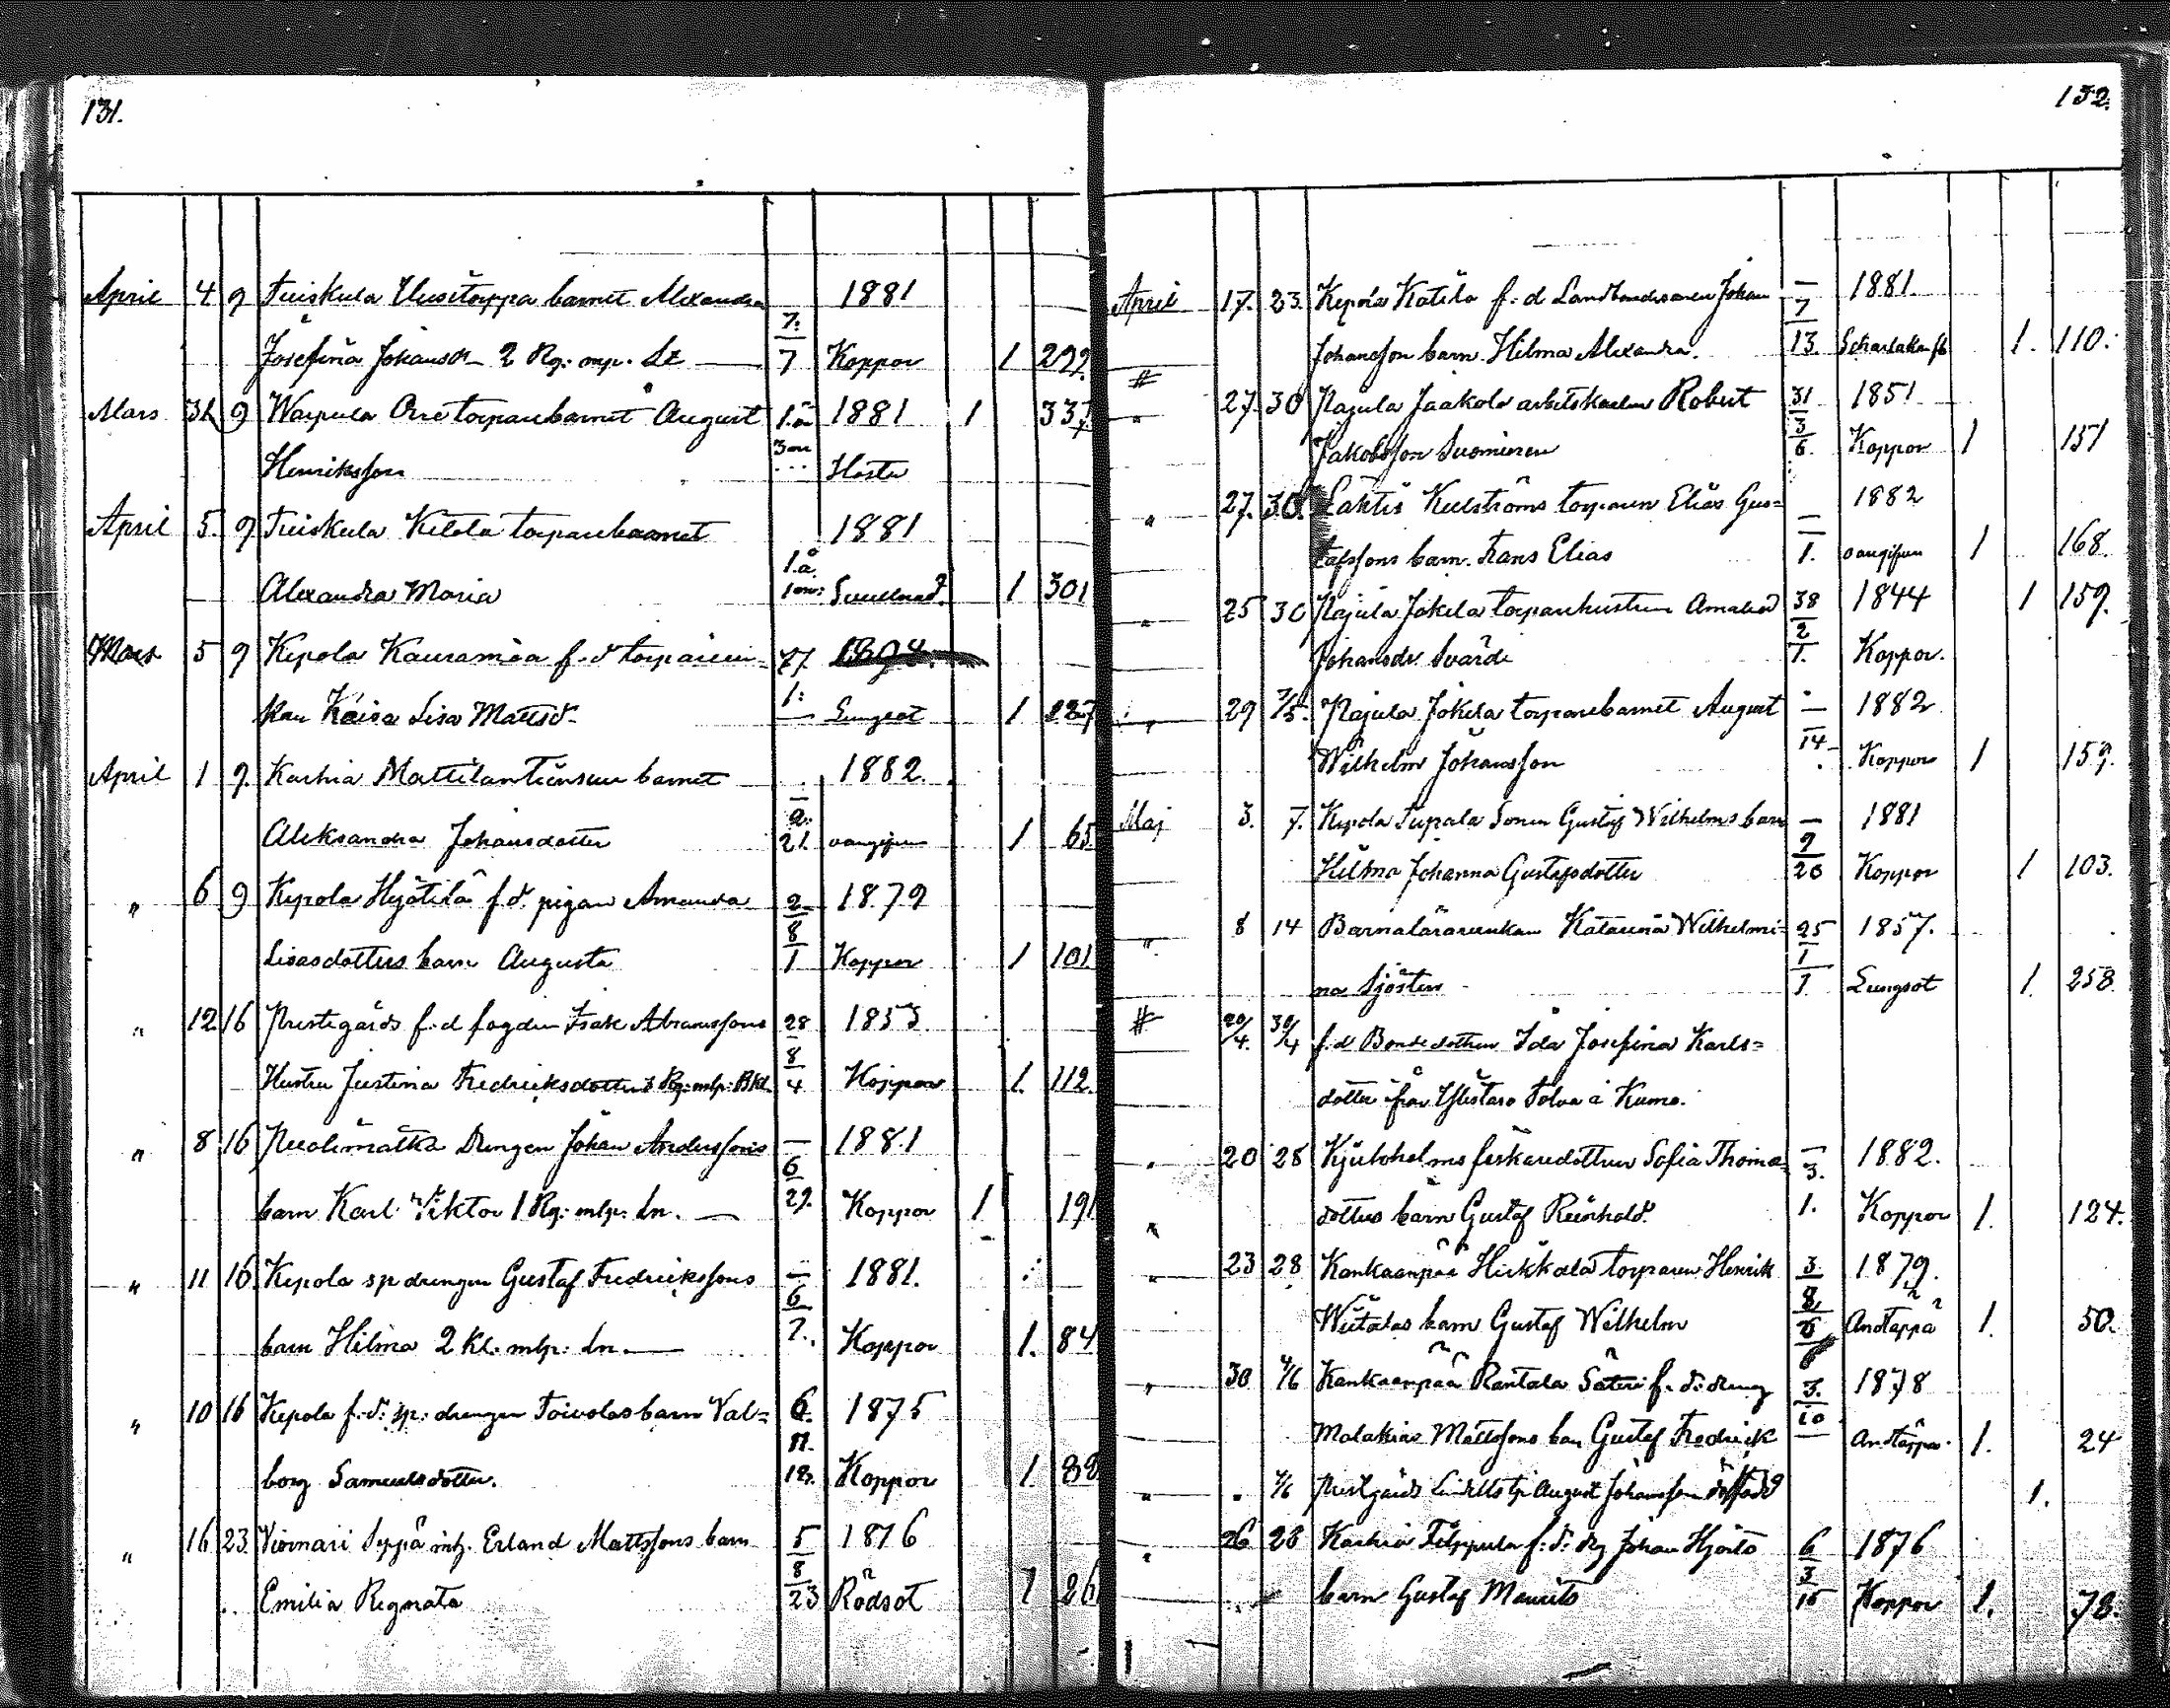 131.
April 4 9 Tuiskula Uusitorppa barnet Alexandra 1881
Josefina Johansdr 2 Rg: mp. Lt 7: 7 Koppor 1 299.
Mars 31 9 Warpula Orre torparebarnet August 1.å 1881 1 337.
Henriksson 3 m Hosta
April 5. 9 Tuiskula Kilola torparebarnet 1881
Alexandra Maria 1.å 1 m: 1 301
Mars 5 9 Kepola Kauramaa f. d torpareen= 77. 1804.
kan Kaisa Lisa Mattsd. 1: Lungsot 1 227
April 1 9. Karhia Mattilan barnet 1882.
Aleksandra Johansdotter 2. 21. oangifven 1 65
" 6 9 Kepola Hyötilä f. d. pigan Amanda 2 1879
Lisasdotters barn Augusta 8 1 Koppor 1 101.
" 12 16 Prestegårds f. d fogden Isak Abramssons 28 1853.
Hustru Justina Fredriksdotter Rg: mlp: Bkl. 8 4 Koppor 1. 112.
" 8 16 Drengen Johan Anderssons — 1881
barn Karl Viktor 1 Rg: mlp: Ln. — 6 29. Koppor 1 191.
" 11 16. Kepola sp drengen Gustaf Fredrikssons — 1881.
barn Hilma 2 Kl. mlp: Ln. — 6 7. Koppor 1. 84
" 10 16 Kepola f. d. sp: drengen Toivolas barn Val= 6. 1875
borg Samuelsdotter. 11. 18. Koppor 1. 88
" 16 23 Viinari Seppä Erland Mattssons barn 5 1876
Emilia Regnata 8 23 Rödsot 1 26
132.
April 17. 23. Kepola Katila f. d Landbondesonen Johan — 1881.
Johansson barn Hilma Alexandra. 7 13 Scharlakansf 1. 110.
# " 27. 30 Najula Jaakola arbetskarlen Robert 31 1851
Jakobsson Suominen 3 6. Koppor 1 151
" 27. 30. Lähtis Kullströms torparen Elias Gus= — 1882
tafssons barn Frans Elias 1. oangifven 1 168.
" 25 30 Najula Jokela torparhustrun Amalia 38 1844 1 159.
Johansdr Svärd 2 1. Koppor.
" 29 7/5. Najula Jokela torparebarnet August — 1882
Wilhelm Johansson 14 Koppor 1 159.
Maj 3. 7. Kepola Supala Sonen Gustaf Wilhelms barn — 1881
Hilma Johanna Gustafsdotter 9 20 Koppor 1 103.
" 8 14 Barnalärareenkan Katarina Wilhelmi= 25 1857.
na Sjösten 1 1. Lungsot 1. 258
# 20/4. 30/4 f. d Bondedottren Ida Josefina Karls=
dotter ifrån Ylistaro Tolva i Kumo.
" 20 28 Kjuloholms fiskaredottren Sofia Thoma — 1882.
dotters barn Gustaf Reinhold. 3. 1. Koppor 1. 124.
" 23 28 Kankaanpää Heikkola torparen Henrik 3 1879.
barn Gustaf Wilhelm 8 Andtäppa 1. 50.
" 30 4/6 Kankaanpää Rantala Säteri f. d. dreng 3. 1878
Malakias Mattssons barn Gustaf Fredrick 10 Andtäppa. 1. 24
" " 4/6 Prestgårds August Johansson dödfödd 1.
" 26 28 Karhia Filppula f. d. Johan Hjorts 6 1876
barn Gustaf Maurits 3 15 Koppor 1. 78.